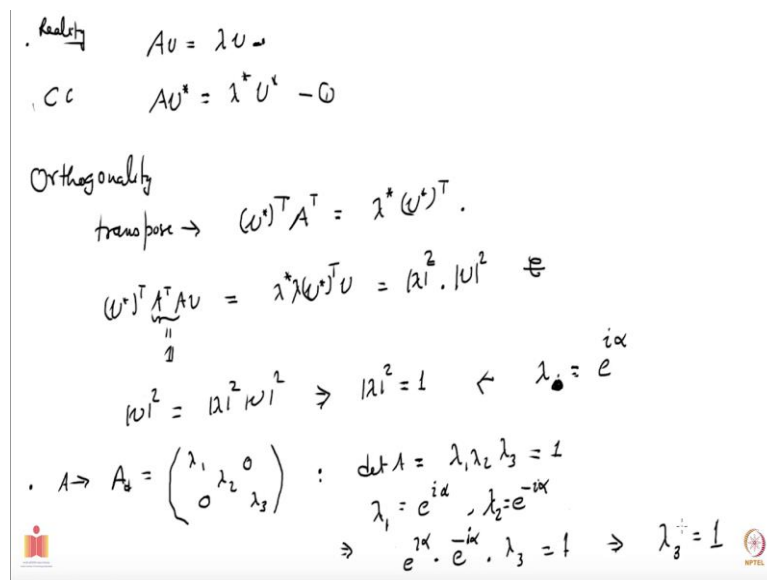 . Reality Aυ = λυ
. CC Aυ* = λ* υ* – ①
Orthogonality
transpose → (υ*)ᵀ Aᵀ = λ* (υ*)ᵀ .
(υ*)ᵀ AᵀAυ = λ*λ(υ*)ᵀ υ = |λ|² . |υ|²
=
1
|υ|² = |λ|² |υ|² ⇒ |λ|² = 1 ← λ = e^{iα}
. A → A_d = ( λ₁ 0 λ₂ 0 λ₃ ) : det A = λ₁ λ₂ λ₃ = 1
λ₁ = e^{iα} , λ₂ = e^{-iα}
⇒ e^{iα} . e^{-iα} . λ₃ = 1 ⇒ λ₃ = 1
NPTEL